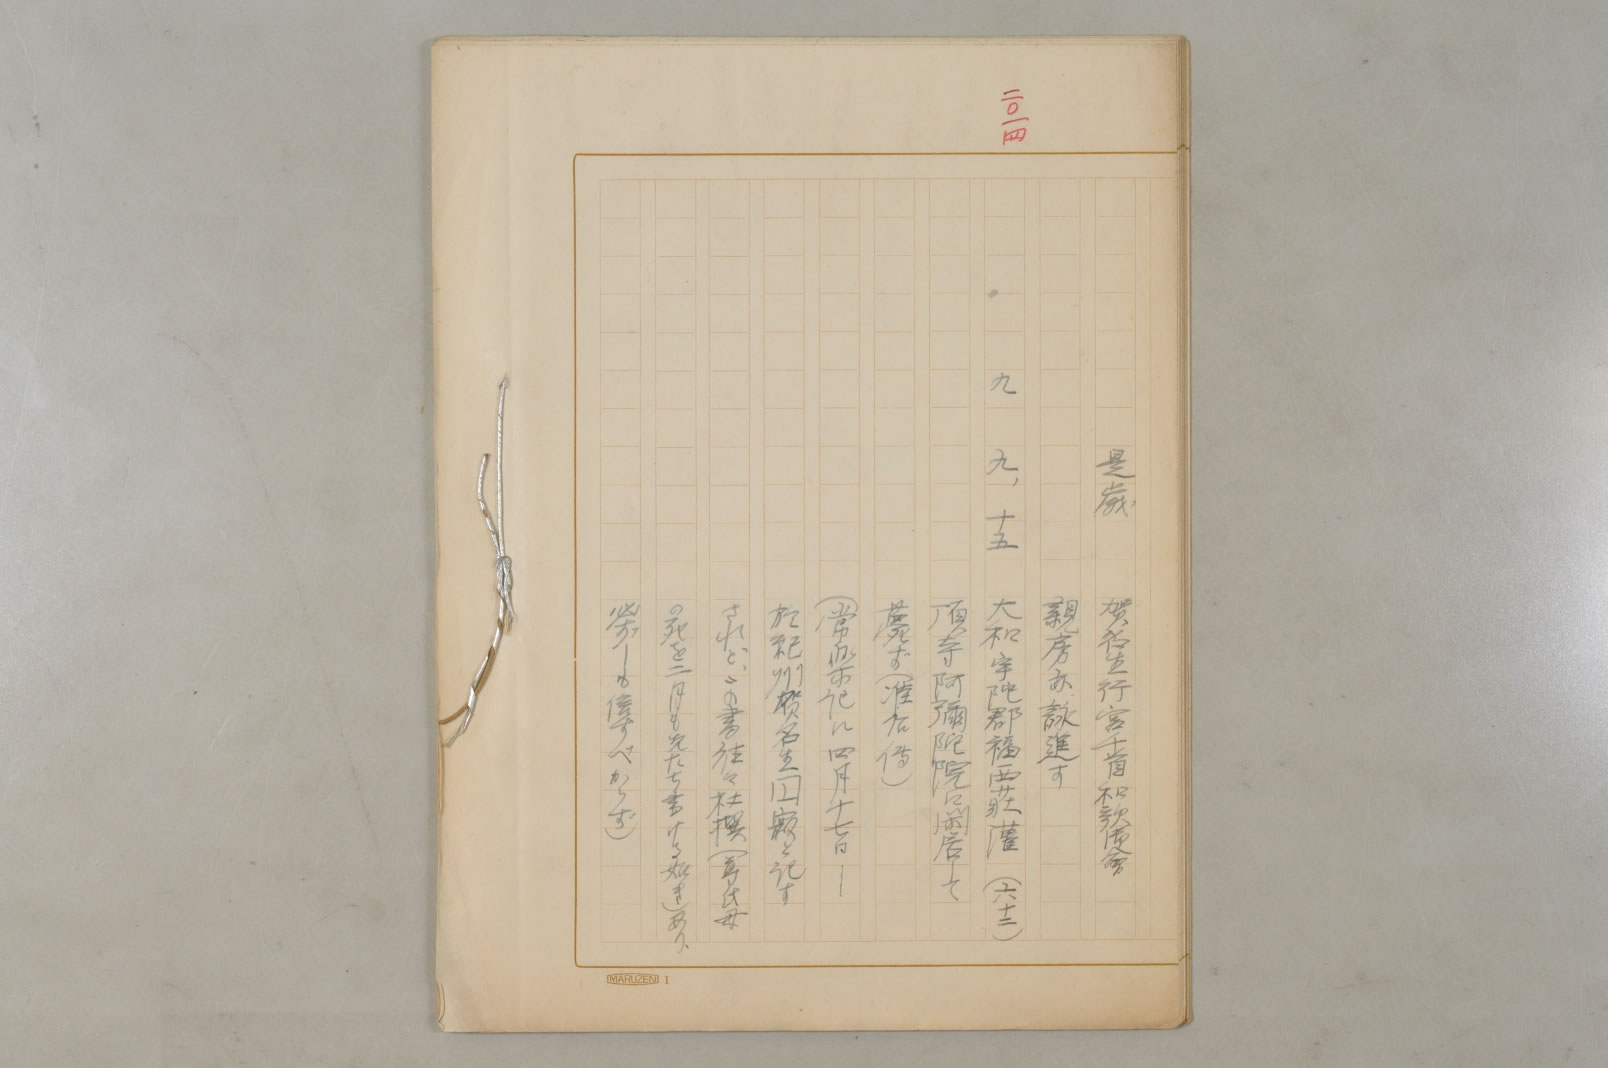 二〇一四
是歳 賀名生行宮千首和歌便會
親房亦詠進す
九 九、十五 大和宇陀郡福西荘灌(六十二)
頂寺阿彌陀院に閑居して
薨ず(准后傳)
(常楽記に四月十七日―
於紀州賀名生円寂と記す
されど、この書往々杜撰(尊氏母
の死を二月も先たち書ける如き)あり、
必ずしも信ずべからず)
MARUZEN I